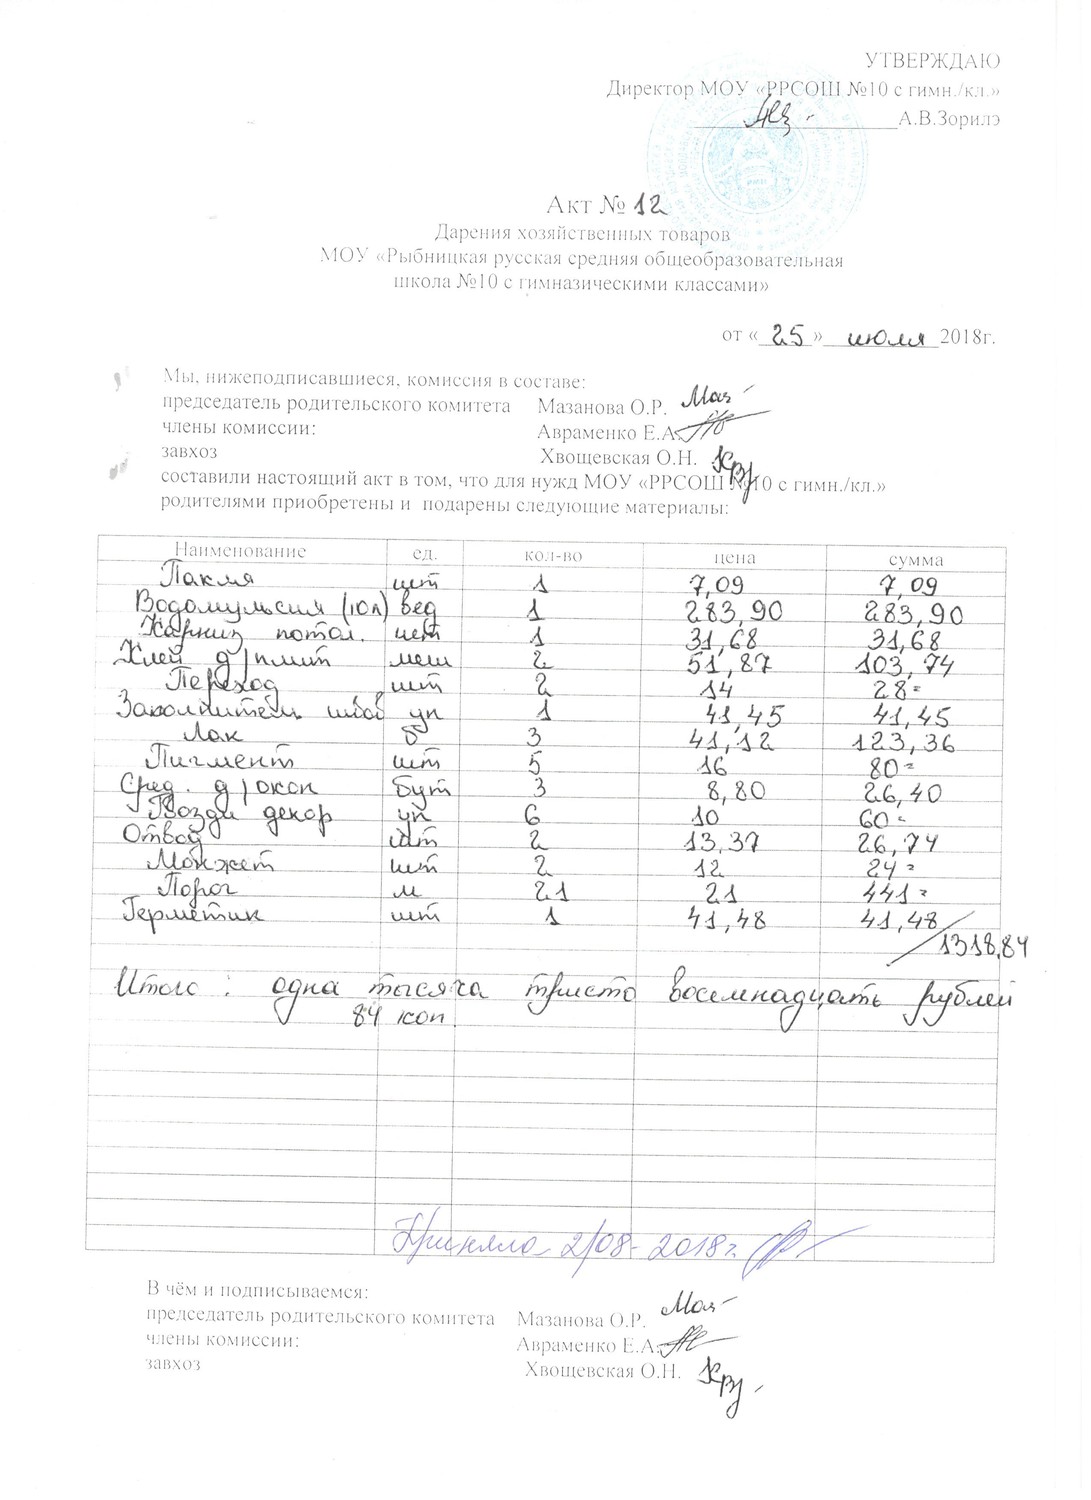 УТВЕРЖДАЮ
Директор МОУ «РРСОШ №10 с гимн./кл.»
А.В.Зорилэ
Акт № 12
Дарения хозяйственных товаров
МОУ «Рыбницкая русская средняя общеобразовательная
школа №10 с гимназическими классами»
от «25» июля 2018г.
Мы, нижеподписавшиеся, комиссия в составе:
председатель родительского комитета Мазанова О.Р.
члены комиссии: Авраменко Е.А.
завхоз Хвощевская О.Н.
составили настоящий акт в том, что для нужд МОУ «РРСОШ №10 с гимн./кл.»
родителями приобретены и подарены следующие материалы:
Наименование ед. кол-во цена сумма
Пакля шт 1 7,09 7,09
Водоэмульсия (10л) вед 1 283,90 283,90
Карниз потол. шт 1 31,68 31,68
Клей д/плит меш 2 51,87 103,74
Переход шт 2 14 28=
Заполнитель швов уп 1 41,45 41,45
Лак б 3 41,12 123,36
Пигмент шт 5 16 80=
Сред. д/окон бут 3 8,80 26,40
Гвозди декор уп 6 10 60=
Отвод шт 2 13,37 26,74
Манжет шт 2 12 24=
Порог м 21 21 441=
Герметик шт 1 41,48 41,48
1318,84
Итого : одна тысяча триста восемнадцать рублей
84 коп.
Приняла 2/08-2018г.
В чём и подписываемся:
председатель родительского комитета Мазанова О.Р.
члены комиссии: Авраменко Е.А.
завхоз Хвощевская О.Н.